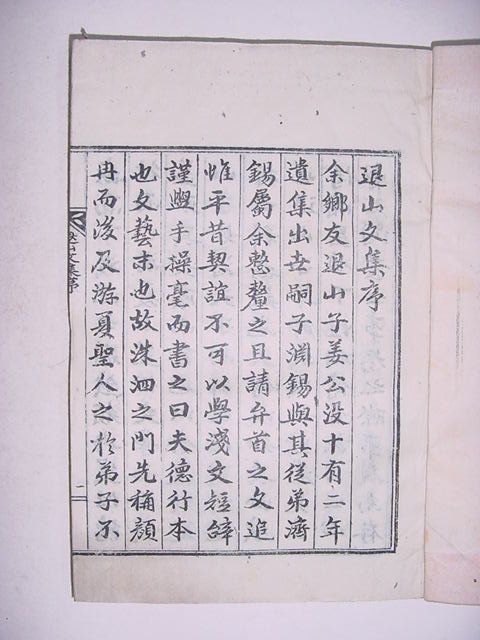 退山文集序
余鄉友退山子姜公沒十有二年
遺集出世嗣子淵錫與其從弟濟
錫屬余憗釐之且請弁首之文追
惟平昔契誼不可以學淺文短辭
謹盥手操毫而書之曰夫德行本
也文藝末也故洙泗之門先稱顏
冉而後及游夏聖人之於弟子不
山文集序
一